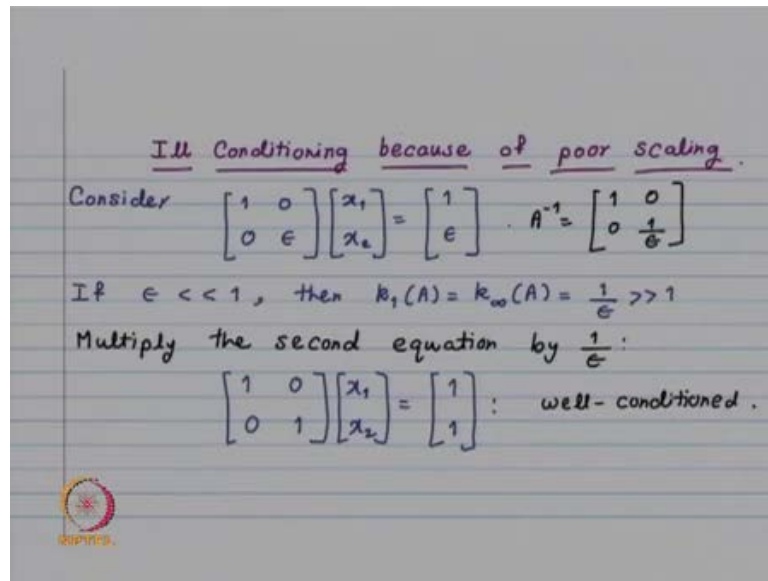 Ill Conditioning because of poor scaling.
Consider [1 0; 0 ϵ] [x₁; x₂] = [1; ϵ] . A⁻¹ = [1 0; 0 1/ϵ]
If ϵ << 1, then k₁(A) = k∞(A) = 1/ϵ >> 1
Multiply the second equation by 1/ϵ :
[1 0; 0 1] [x₁; x₂] = [1; 1] : well-conditioned.